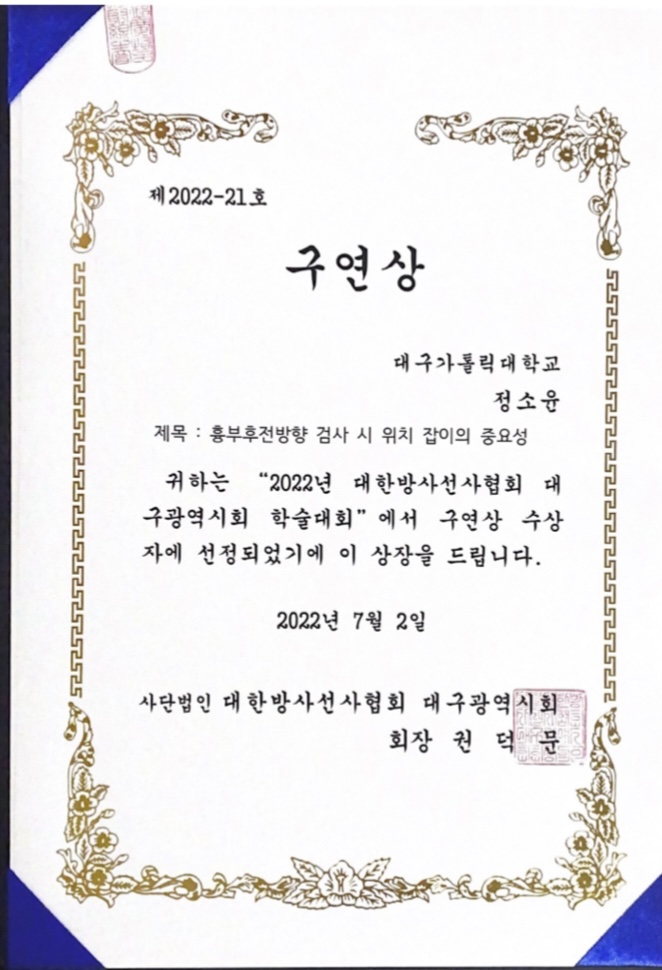 제2022-21호
구연상
대구가톨릭대학교
정소윤
제목 : 흉부후전방향 검사 시 위치 잡이의 중요성
귀하는 “2022년 대한방사선사협회 대
구광역시회 학술대회”에서 구연상 수상
자에 선정되었기에 이 상장을 드립니다.
2022년 7월 2일
사단법인 대한방사선사협회 대구광역시회
회장 권 덕 문